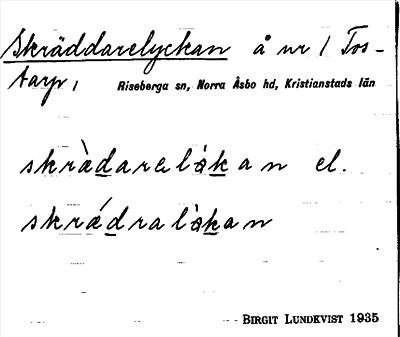 Skräddarelyckan å nr 1 Tos-
tarp, Riseberga sn, Norra Åsbo hd, Kristianstads län
skrädareløkan el.
skrädraløkan
BIRGIT LUNDKVIST 1935